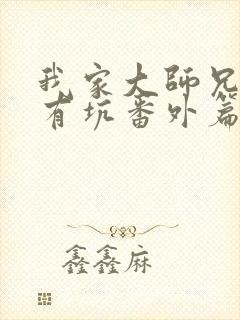 我家大师兄
有坑番外篇
鑫鑫麻